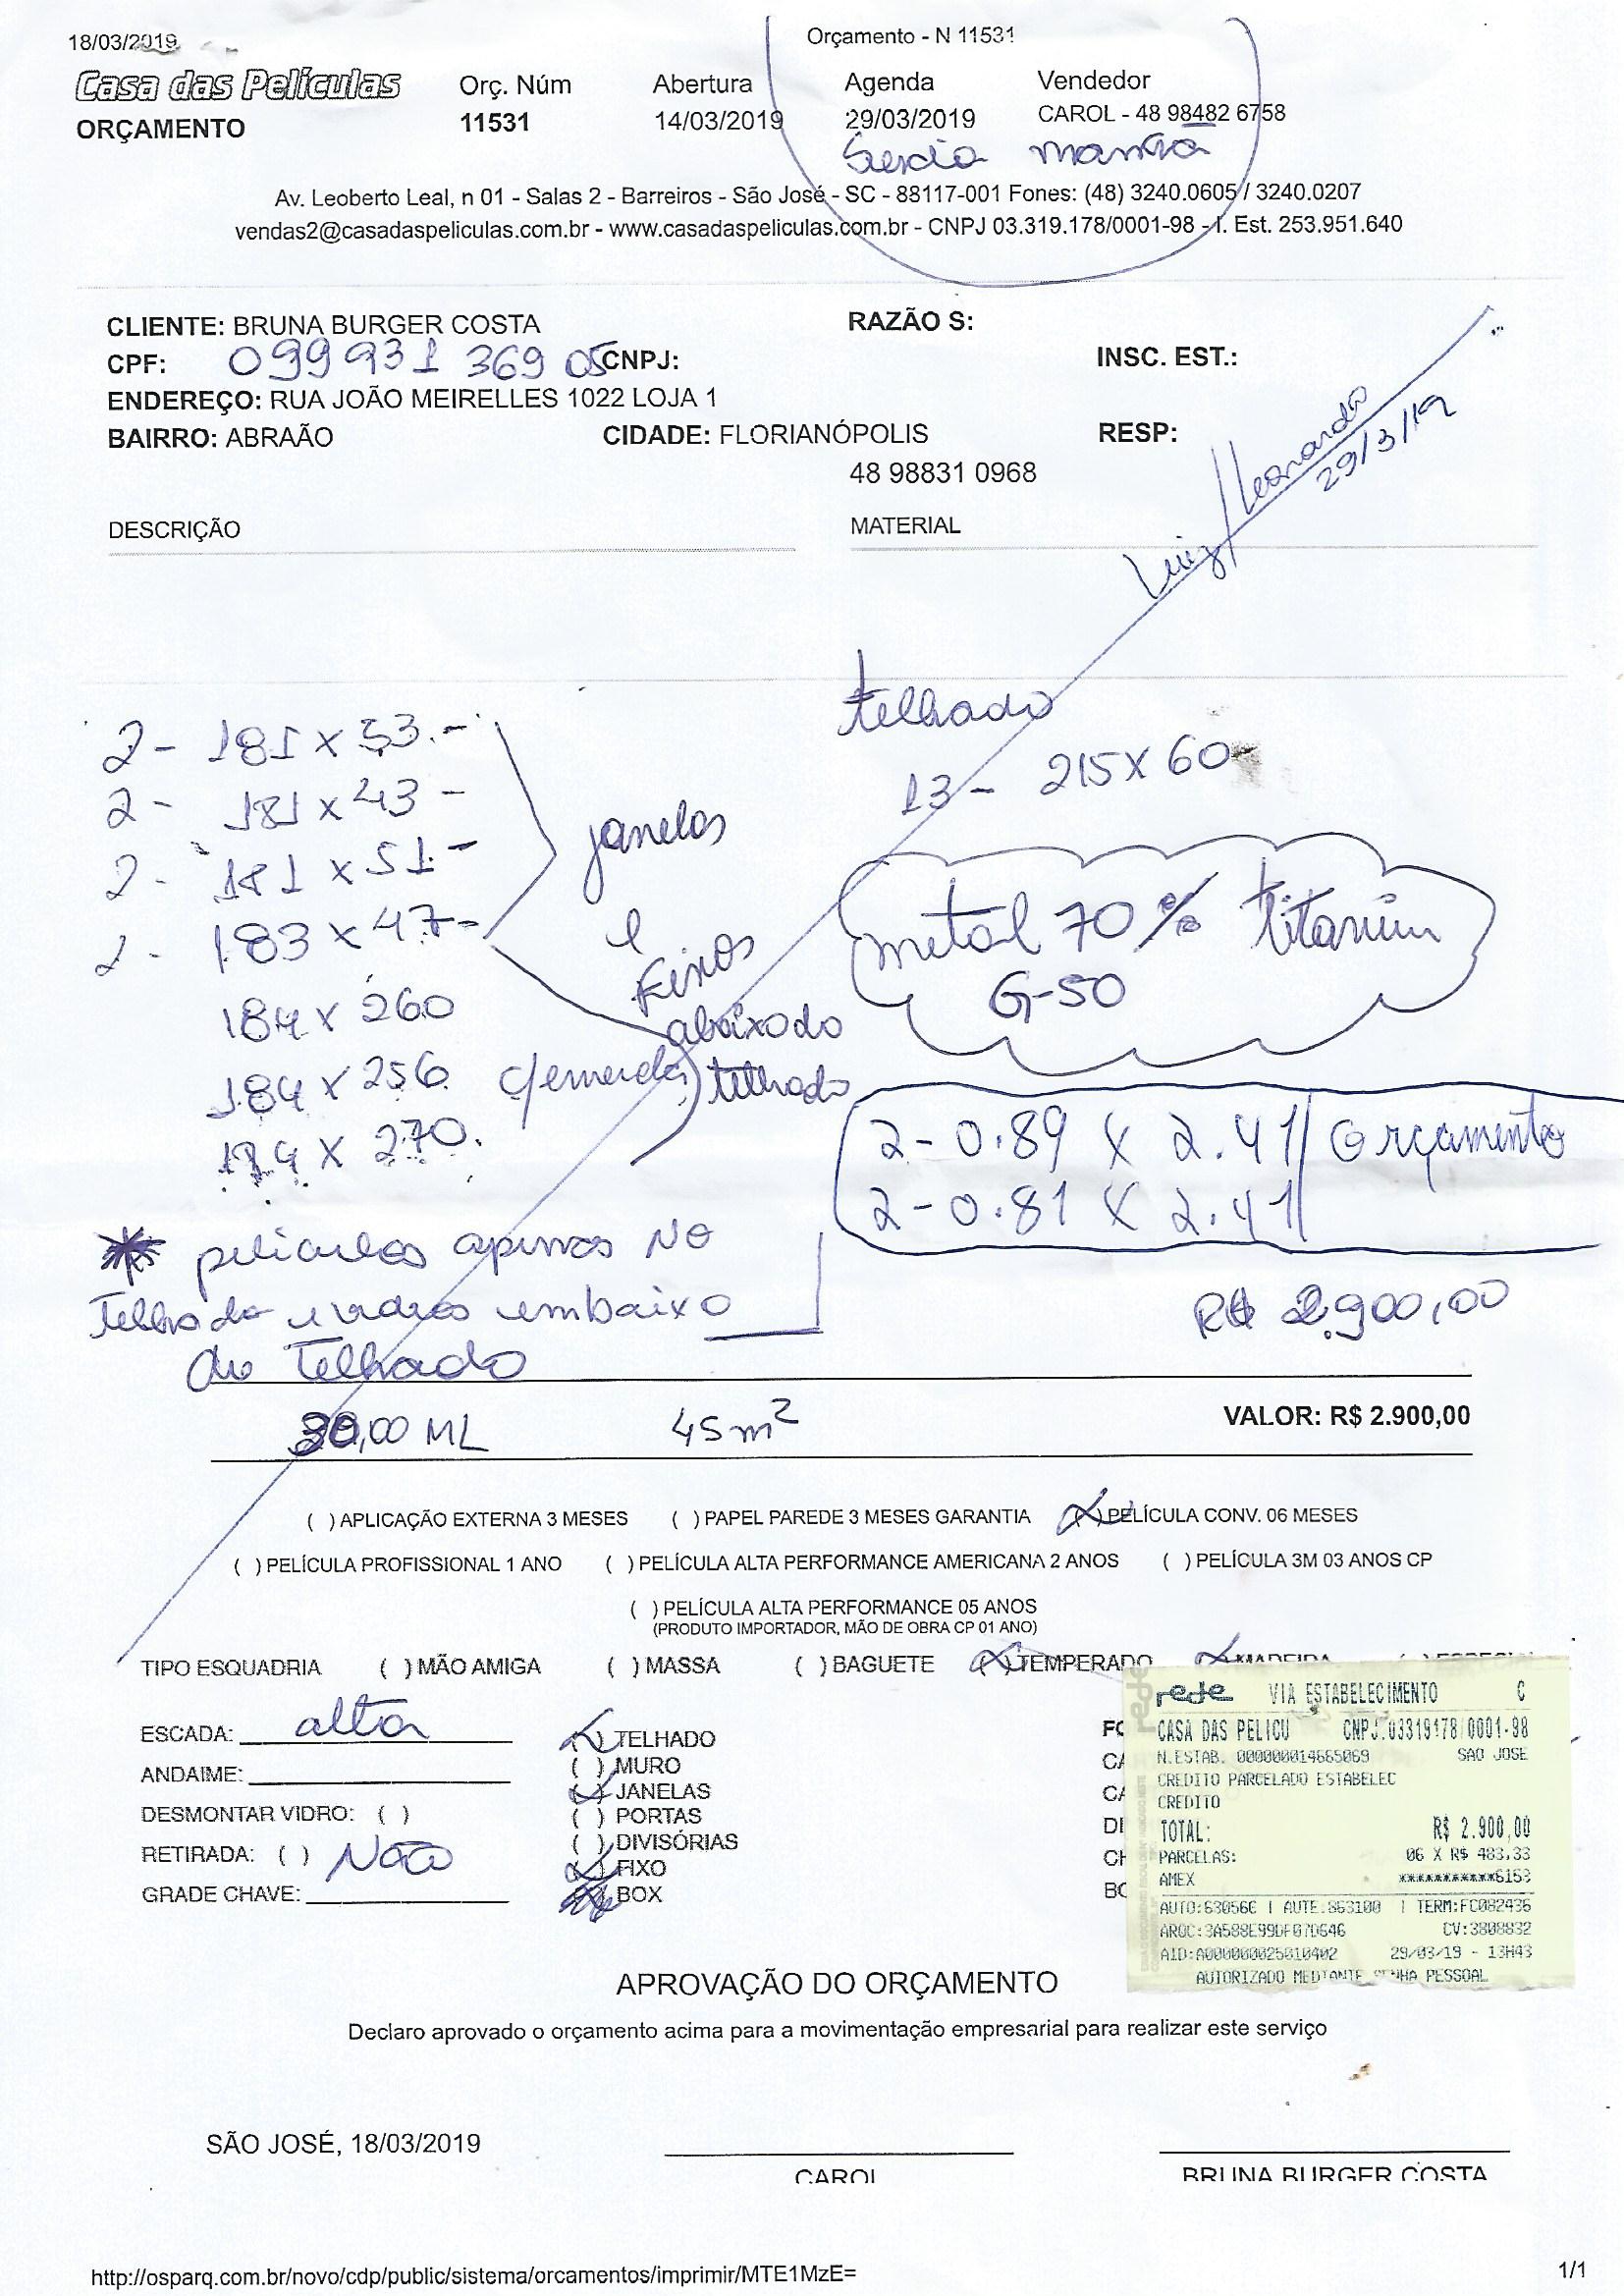 18/03/2019
Orçamento - N 11531
Casa das Películas
ORÇAMENTO
Orç. Núm
11531
Abertura
14/03/2019
Agenda
29/03/2019
Vendedor
CAROL - 48 98482 6758
manhã
Av. Leoberto Leal, n 01 - Salas 2 - Barreiros - São José - SC - 88117-001 Fones: (48) 3240.0605 / 3240.0207
vendas2@casadaspeliculas.com.br - www.casadaspeliculas.com.br - CNPJ 03.319.178/0001-98 - I. Est. 253.951.640
CLIENTE: BRUNA BURGER COSTA
RAZÃO S:
CPF: 099 931 369 05 CNPJ:
INSC. EST.:
ENDEREÇO: RUA JOÃO MEIRELLES 1022 LOJA 1
BAIRRO: ABRAÃO
CIDADE: FLORIANÓPOLIS
RESP:
48 98831 0968
Luiz/Leonardo
29/3/19
DESCRIÇÃO
MATERIAL
2 - 181 x 53.-
2 - 181 x 43 -
2 - 181 x 51.-
2 - 183 x 47-
184 x 260
184 x 256 c/emenda
184 x 270.
janelas
e
Fixos
abaixo do
telhado
telhado
13 - 215 x 60
metal 70% titanium
G-50
2 - 0.89 x 2.41
2 - 0.81 x 2.41
orçamento
* películas apenas no
Telhado e vidros embaixo
do Telhado
R$ 2.900,00
30,00 ML
45 m²
VALOR: R$ 2.900,00
( ) APLICAÇÃO EXTERNA 3 MESES ( ) PAPEL PAREDE 3 MESES GARANTIA (X) PELÍCULA CONV. 06 MESES
( ) PELÍCULA PROFISSIONAL 1 ANO ( ) PELÍCULA ALTA PERFORMANCE AMERICANA 2 ANOS ( ) PELÍCULA 3M 03 ANOS CP
( ) PELÍCULA ALTA PERFORMANCE 05 ANOS
(PRODUTO IMPORTADOR, MÃO DE OBRA CP 01 ANO)
TIPO ESQUADRIA ( ) MÃO AMIGA ( ) MASSA ( ) BAGUETE (X) TEMPERADO (X) MADEIRA
ESCADA: alta
ANDAIME:
DESMONTAR VIDRO: ( )
RETIRADA: ( ) Não
GRADE CHAVE:
(X) TELHADO
( ) MURO
(X) JANELAS
( ) PORTAS
( ) DIVISÓRIAS
(X) FIXO
( ) BOX
FO
CA
CA
DI
CH
BO
rede VIA ESTABELECIMENTO C
CASA DAS PELICU CNPJ.03319178/0001-98
N.ESTAB. 000000014665069 SAO JOSE
CREDITO PARCELADO ESTABELEC
CREDITO
TOTAL: R$ 2.900,00
PARCELAS: 06 X R$ 483,33
AMEX ***********6153
AUTO:63056E | AUTE:863100 | TERM:FC082436
ARQC:3A588E99DF07D646 CV:3808832
AID:A000000025010402 29/03/19 - 13H43
AUTORIZADO MEDIANTE SENHA PESSOAL
APROVAÇÃO DO ORÇAMENTO
Declaro aprovado o orçamento acima para a movimentação empresarial para realizar este serviço
SÃO JOSÉ, 18/03/2019
CAROL
BRUNA BURGER COSTA
http://osparq.com.br/novo/cdp/public/sistema/orcamentos/imprimir/MTE1MzE=
1/1